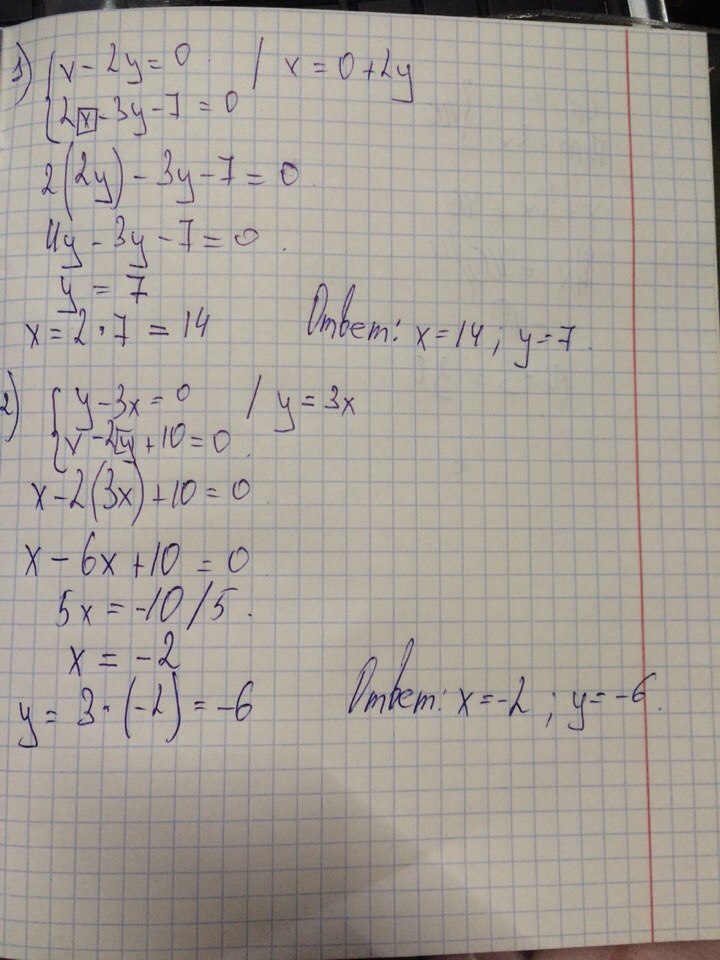 1) { x - 2y = 0. / x = 0 + 2y
{ 2x - 3y - 7 = 0
2(2y) - 3y - 7 = 0.
4y - 3y - 7 = 0.
y = 7
x = 2 · 7 = 14 Ответ: x = 14; y = 7.
2) { y - 3x = 0 / y = 3x
{ x - 2y + 10 = 0.
x - 2(3x) + 10 = 0
x - 6x + 10 = 0
5x = -10 / 5.
x = -2
y = 3 · (-2) = -6 Ответ: x = -2; y = -6.